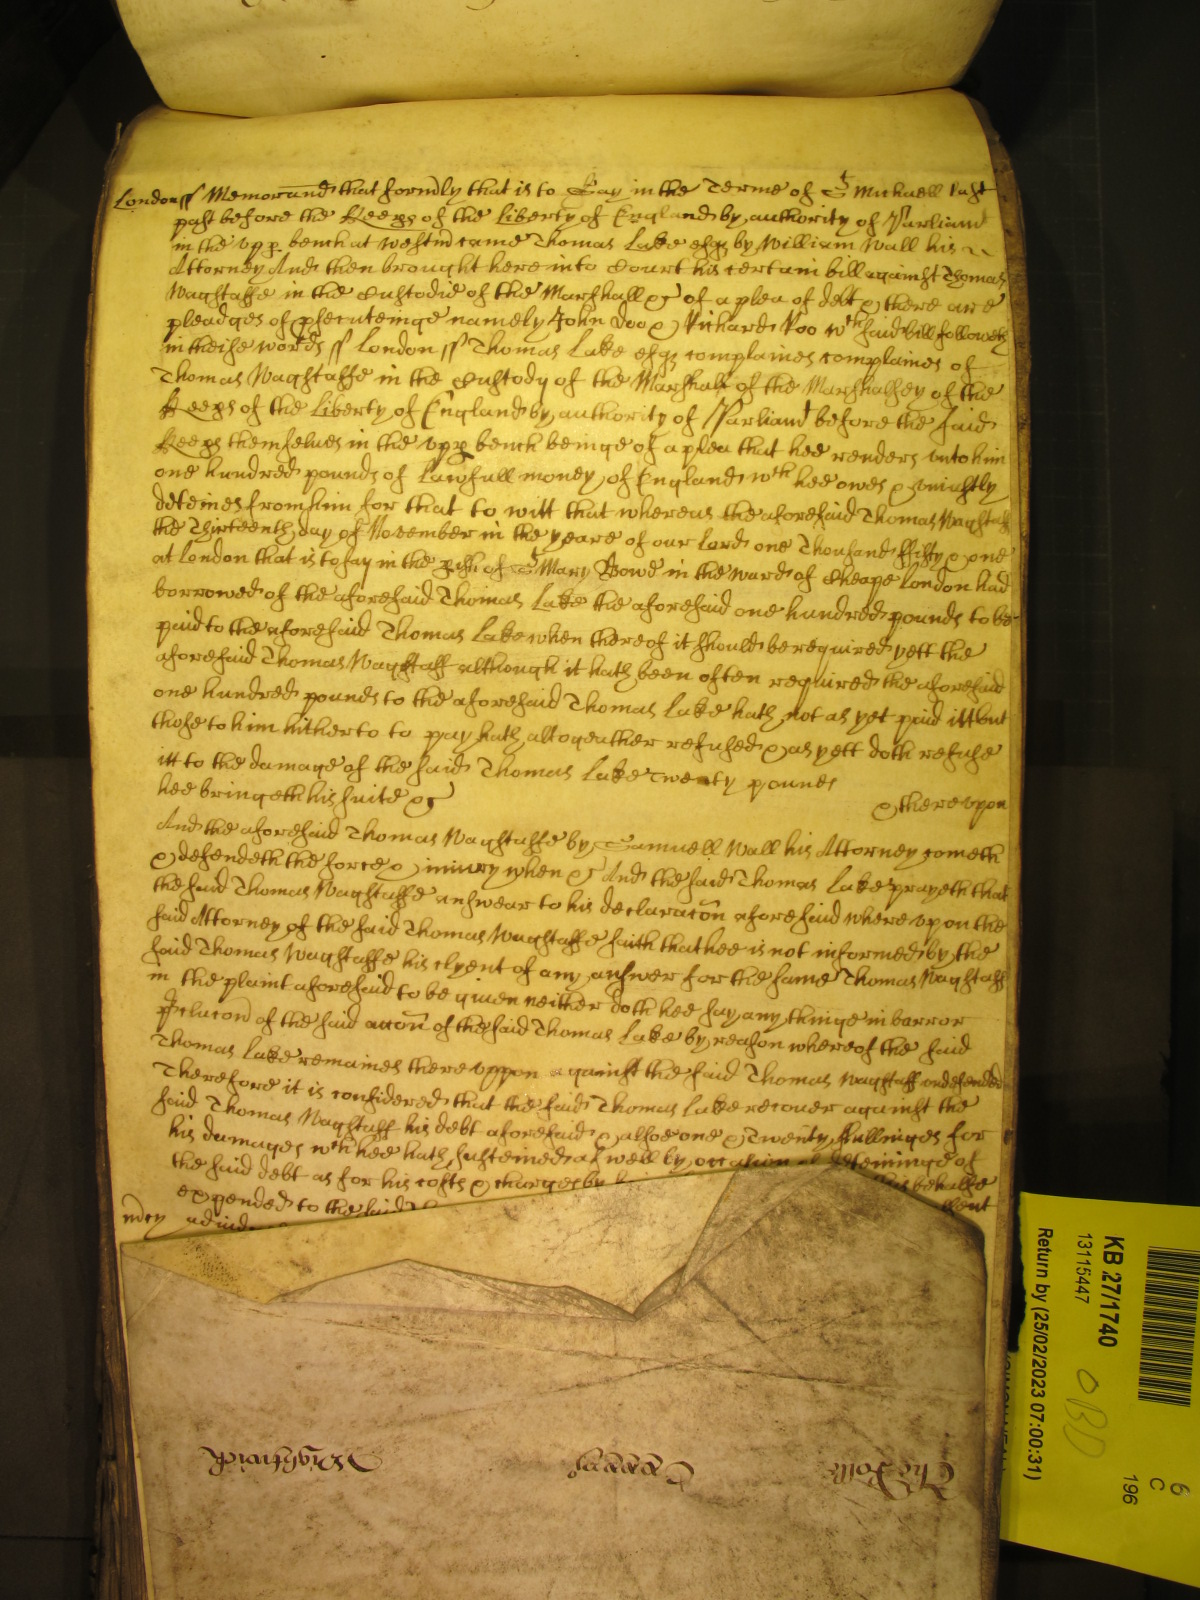 London ss Memorand that formly that is to Say in the Terme of St Michaell last
past before the Keeps of the Liberty of England by authority of Parliamt
in the upp bench at Westm came Thomas Lake esqr by William Wall his
Attorney And then brought here into Court his certain bill against Thomas
Wagstaffe in the Custodie of the Marshall &c of a plea of debt & there are
pleadges of psecuteinge namely John Doo & Richard Roo wch said bill followeth
in theise words ss London ss Thomas Lake esqr complaines complaines of
Thomas Wagstaffe in the Custody of the Marshall of the Marshalsey of the
Keeps of the Liberty of England by authority of Parliamt before the said
Keeps themselves in the upp bench beinge of a plea that hee renders unto him
one hundred pounds of Lawfull money of England wch hee owes & uniustly
deteines from him for that to witt that whereas the aforesaid Thomas Wagstaff
the Thirteenth day of November in the yeare of our Lord one Thousand ffifty & one
at London that is to say in the pish of St Mary Bowe in the ward of Cheape London had
borrowed of the aforesaid Thomas Lake the aforesaid one hundred pounds to be
paid to the aforesaid Thomas Lake when thereof it should be required yett the
aforesaid Thomas Wagstaff although it hath been often required the aforesaid
one hundred pounds to the aforesaid Thomas Lake hath not as yet paid itt but
those to him hitherto to pay hath altogeather refused & as yett doth refuse
itt to the damage of the said Thomas Lake Twenty pounds
& thereupon
hee bringeth his suite &c
And the aforesaid Thomas Wagstaffe by Samuell Wall his Attorney cometh
& defendeth the force & iniury when &c And the said Thomas Lake prayeth that
the said Thomas Wagstaffe answear to his declaracon aforesaid whereupon the
said Attorney of the said Thomas Wagstaffe saith that hee is not informed by the
said Thomas Wagstaffe his clyent of any answer for the same Thomas Wagstaff
in the plaint aforesaid to be given neither doth hee say any thinge in barr or
pclucon of the said accon of the said Thomas Lake by reason whereof the said
Thomas Lake remaines thereuppon against the said Thomas Wagstaff undefended
Therefore it is considered that the said Thomas Lake recover against the
said Thomas Wagstaff his debt aforesaid & alsoe one & Twenty shillinges for
his damages wch hee hath susteined as well by occasion of deteininge of
the said debt as for his costs & charges by his behalfe
expended to the said
mcy
The Rolle
Wightwick
KB 27/1740
13115447
Return by (25/02/2023 07:00:31)
OBD
6
C
196